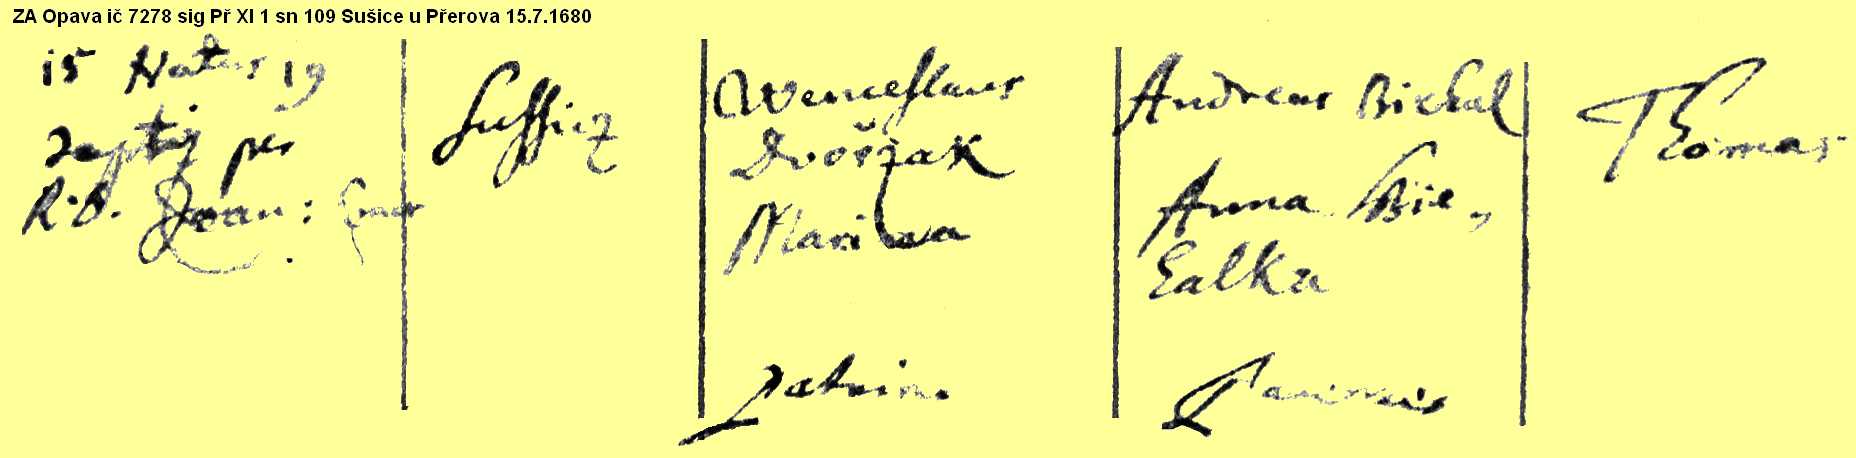 ZA Opava ič 7278 sig Př XI 1 sn 109 Sušice u Přerova 15.7.1680
15 Natus 19
per
R: D. Joan:
Sussicz
Wenceslaus
Dvořzak
Mariana
Andreas Biehal
Anna Bie,
halka
Thomas